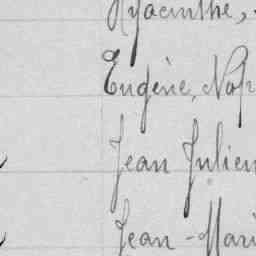 Hyacinthe,
Eugène, Nap
Jean Julien
Jean-Mari